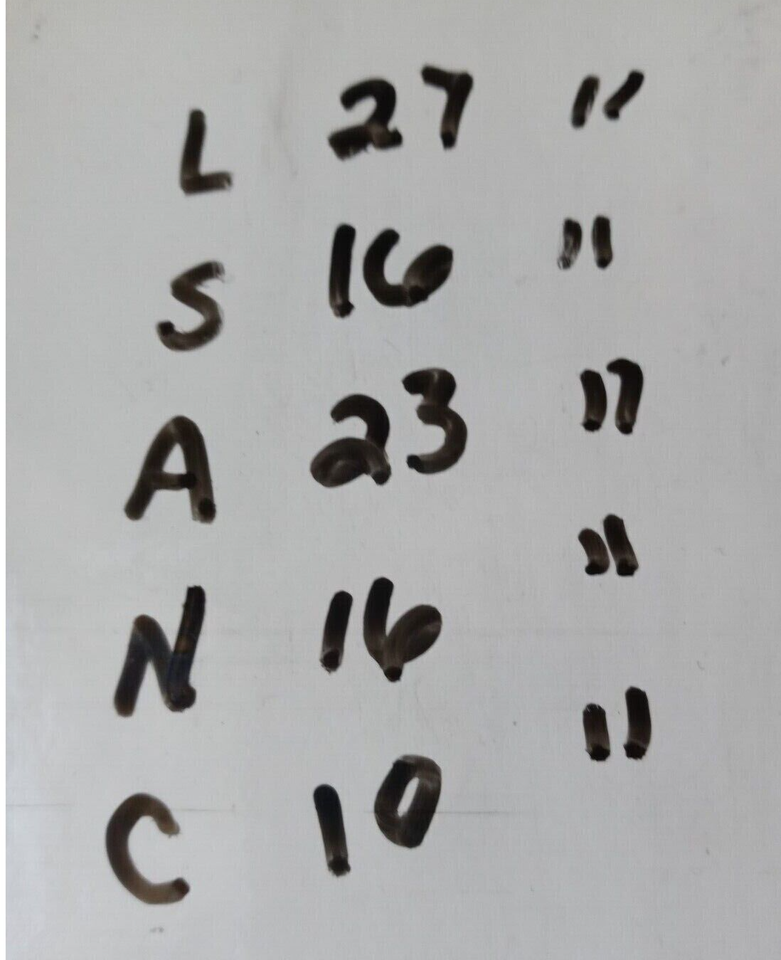 L 27 "
S 16 "
A 23 "
N 16 "
C 10 "